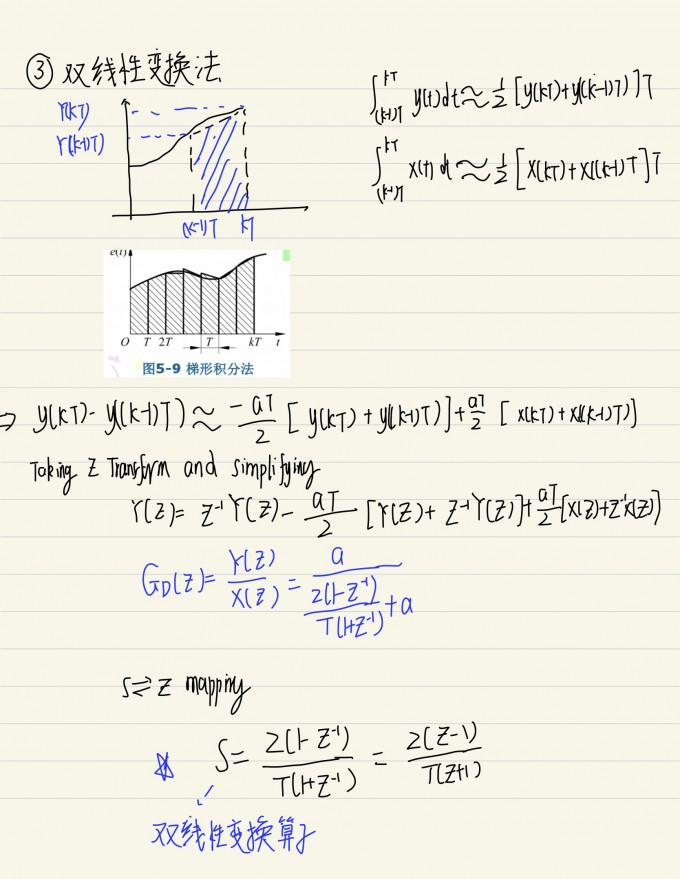 ③ 双线性变换法
Y(kT)
Y(k-1)T)
(k-1)T kT
∫_{(k-1)T}^{kT} y(t)dt ≈ 1/2 [y(kT)+y(k-1)T)]T
∫_{(k-1)T}^{kT} x(t) dt ≈ 1/2 [x(kT)+x((k-1)T]T
e(t)
O T 2T T kT t
图5-9 梯形积分法
⇒ y(kT)- y(k-1)T) ≈ -aT/2 [y(kT)+y(k-1)T)]+aT/2 [x(kT)+x(k-1)T)]
Taking Z Transform and simplifying
Y(z)= z⁻¹Y(z)- aT/2 [Y(z)+ z⁻¹Y(z)]+aT/2[X(z)+z⁻¹X(z)]
G_D(z)= Y(z)/X(z) = a/(2(1-z⁻¹)/T(1+z⁻¹) +a)
s⇌z mapping
S= 2(1-z⁻¹)/T(1+z⁻¹) = 2(z-1)/T(z+1)
双线性变换算子